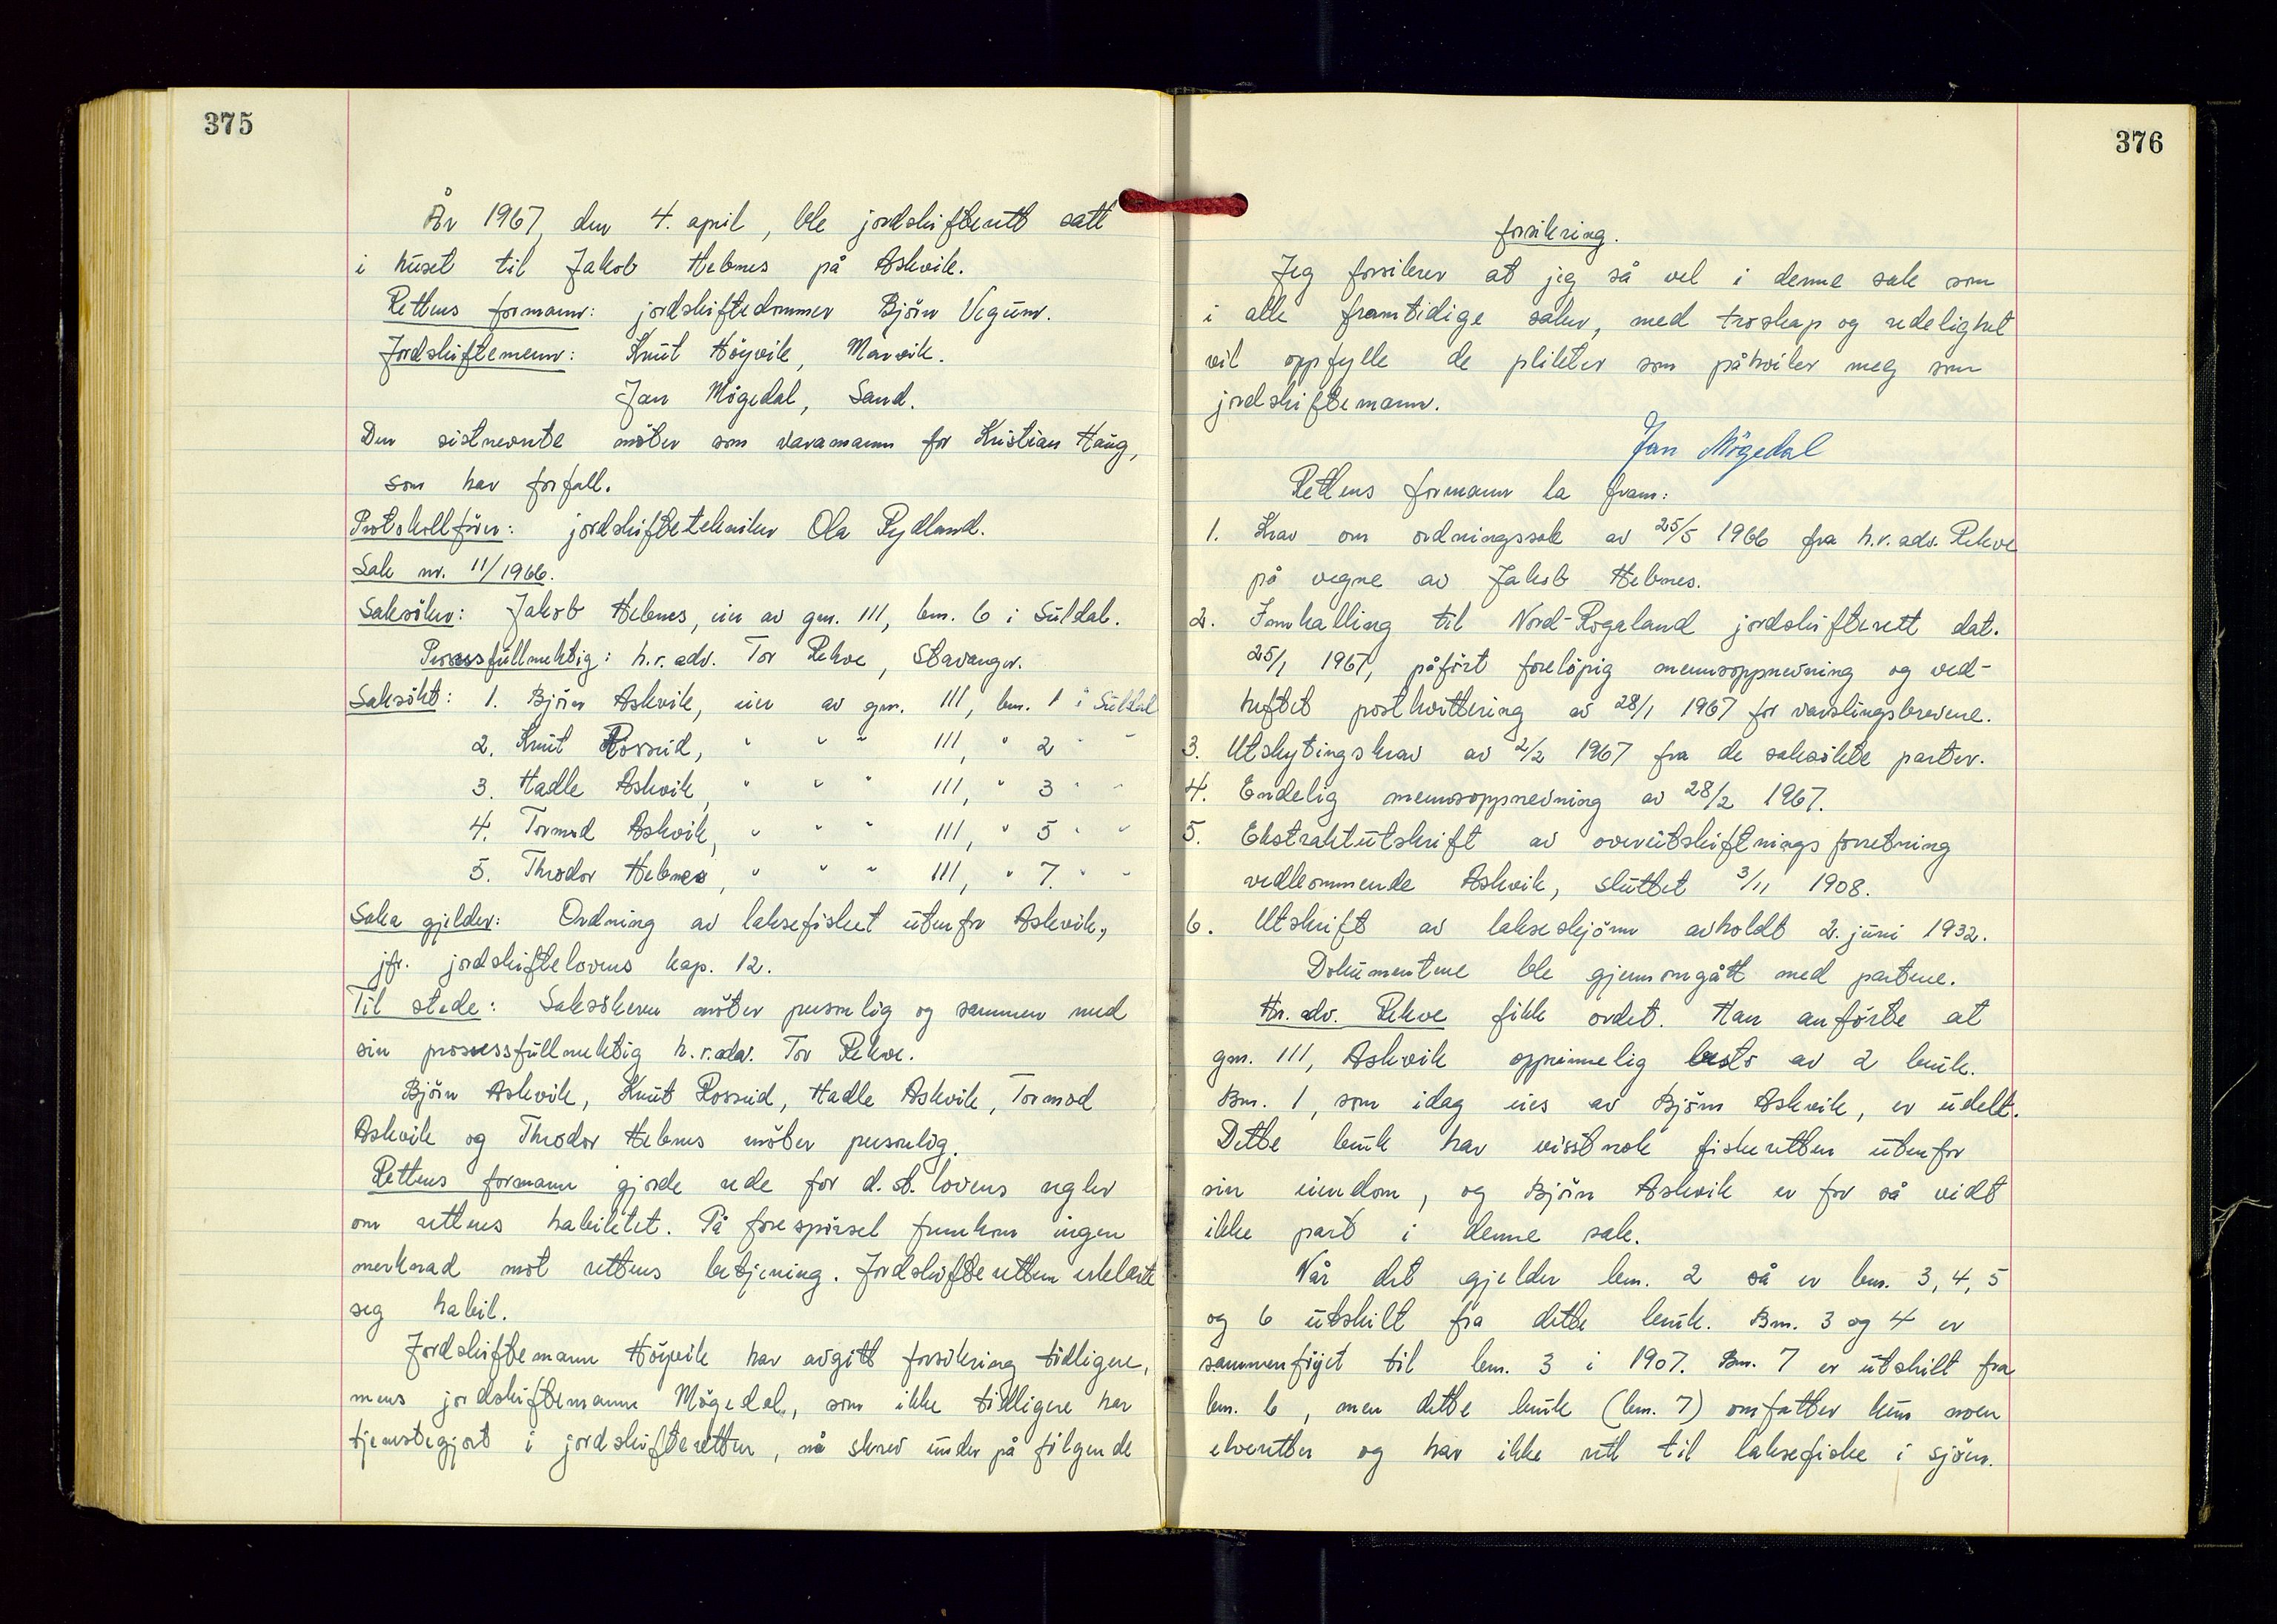 375
År 1967, den 4. april, ble jordskifterett satt
i huset til Jakob Hebnes på Askvik.
Rettens formann: jordskiftedommer Björn Vegum.
Jordskiftemenn: Knut Höyvik, Marvik.
Jan Mögedal, Sand.
Den sistnevnte möter som varamann for Kristian Haug,
som har forfall.
Protokollförer: jordskiftetekniker Ola Rydland.
Sak nr. 11/1966.
Saksöker: Jakob Hebnes, eier av gnr. 111, bnr. 6 i Suldal.
Prosessfullmektig: h.r.adv. Tor Rekve, Stavanger.
Saksökt: 1. Björn Askvik, eier av gnr. 111, bnr. 1 i Suldal
2. Knut Rosseid, " " " 111, " 2 " "
3. Hadle Askvik, " " " 111, " 3 " "
4. Tormod Askvik, " " " 111, " 5 " "
5. Theodor Hebnes, " " " 111, " 7. " "
Saka gjelder: Ordning av laksefisket utenfor Askvik,
jfr. jordskiftelovens kap. 12.
Til stede: Saksökeren möter personlig og sammen med
sin prosessfullmektig h.r.adv. Tor Rekve.
Björn Askvik, Knut Rosseid, Hadle Askvik, Tormod
Askvik og Theodor Hebnes möter personlig.
Rettens formann gjorde rede for d.st.lovens regler
om rettens habilitet. På forespörsel framkom ingen
merknad mot rettens betjening. Jordskifteretten erklærte
seg habil.
Jordskiftemann Höyvik har avgitt forsikring tidligere,
mens jordskiftemann Mögedal, som ikke tidligere har
tjenestegjort i jordskifteretten, nå skrev under på fölgende
376
forsikring.
Jeg forsikrer at jeg så vel i denne sak som
i alle framtidige saker, med troskap og redelighet
vil oppfylle de plikter som påhviler meg som
jordskiftemann.
Jan Mögedal
Rettens formann la fram:
1. Krav om ordningssak av 25/5 1966 fra h.r.adv. Rekve
på vegne av Jakob Hebnes.
2. Innkalling til Nord-Rogaland jordskifterett dat.
25/1 1967, påfört forelöpig mennsoppnevning og ved-
heftet postkvittering av 28/1 1967 for varslingsbrevene.
3. Utskytingskrav av 2/2 1967 fra de saksökte parter.
4. Endelig mennsoppnevning av 28/2 1967.
5. Ekstraktutskrift av overutskiftningsforretning
vedkommende Askvik, sluttet 3/11 1908.
6. Utskrift av lakseskjönn avholdt 2. juni 1932.
Dokumentene ble gjennomgått med partene.
Hr. adv. Rekve fikk ordet. Han anförte at
gnr. 111, Askvik opprinnelig besto av 2 bruk.
Bnr. 1, som idag eies av Björn Askvik, er udelt.
Dette bruk har visstnok fiskeretten utenfor
sin eiendom, og Björn Askvik er for så vidt
ikke part i denne sak.
Når det gjelder bnr. 2 så er bnr. 3, 4, 5
og 6 utskilt fra dette bruk. Bnr. 3 og 4 er
sammenföyet til bnr. 3 i 1907. Bnr. 7 er utskilt fra
bnr. 6, men dette bruk (bnr. 7) omfatter kun noen
elveretter og har ikke rett til laksefiske i sjöen.